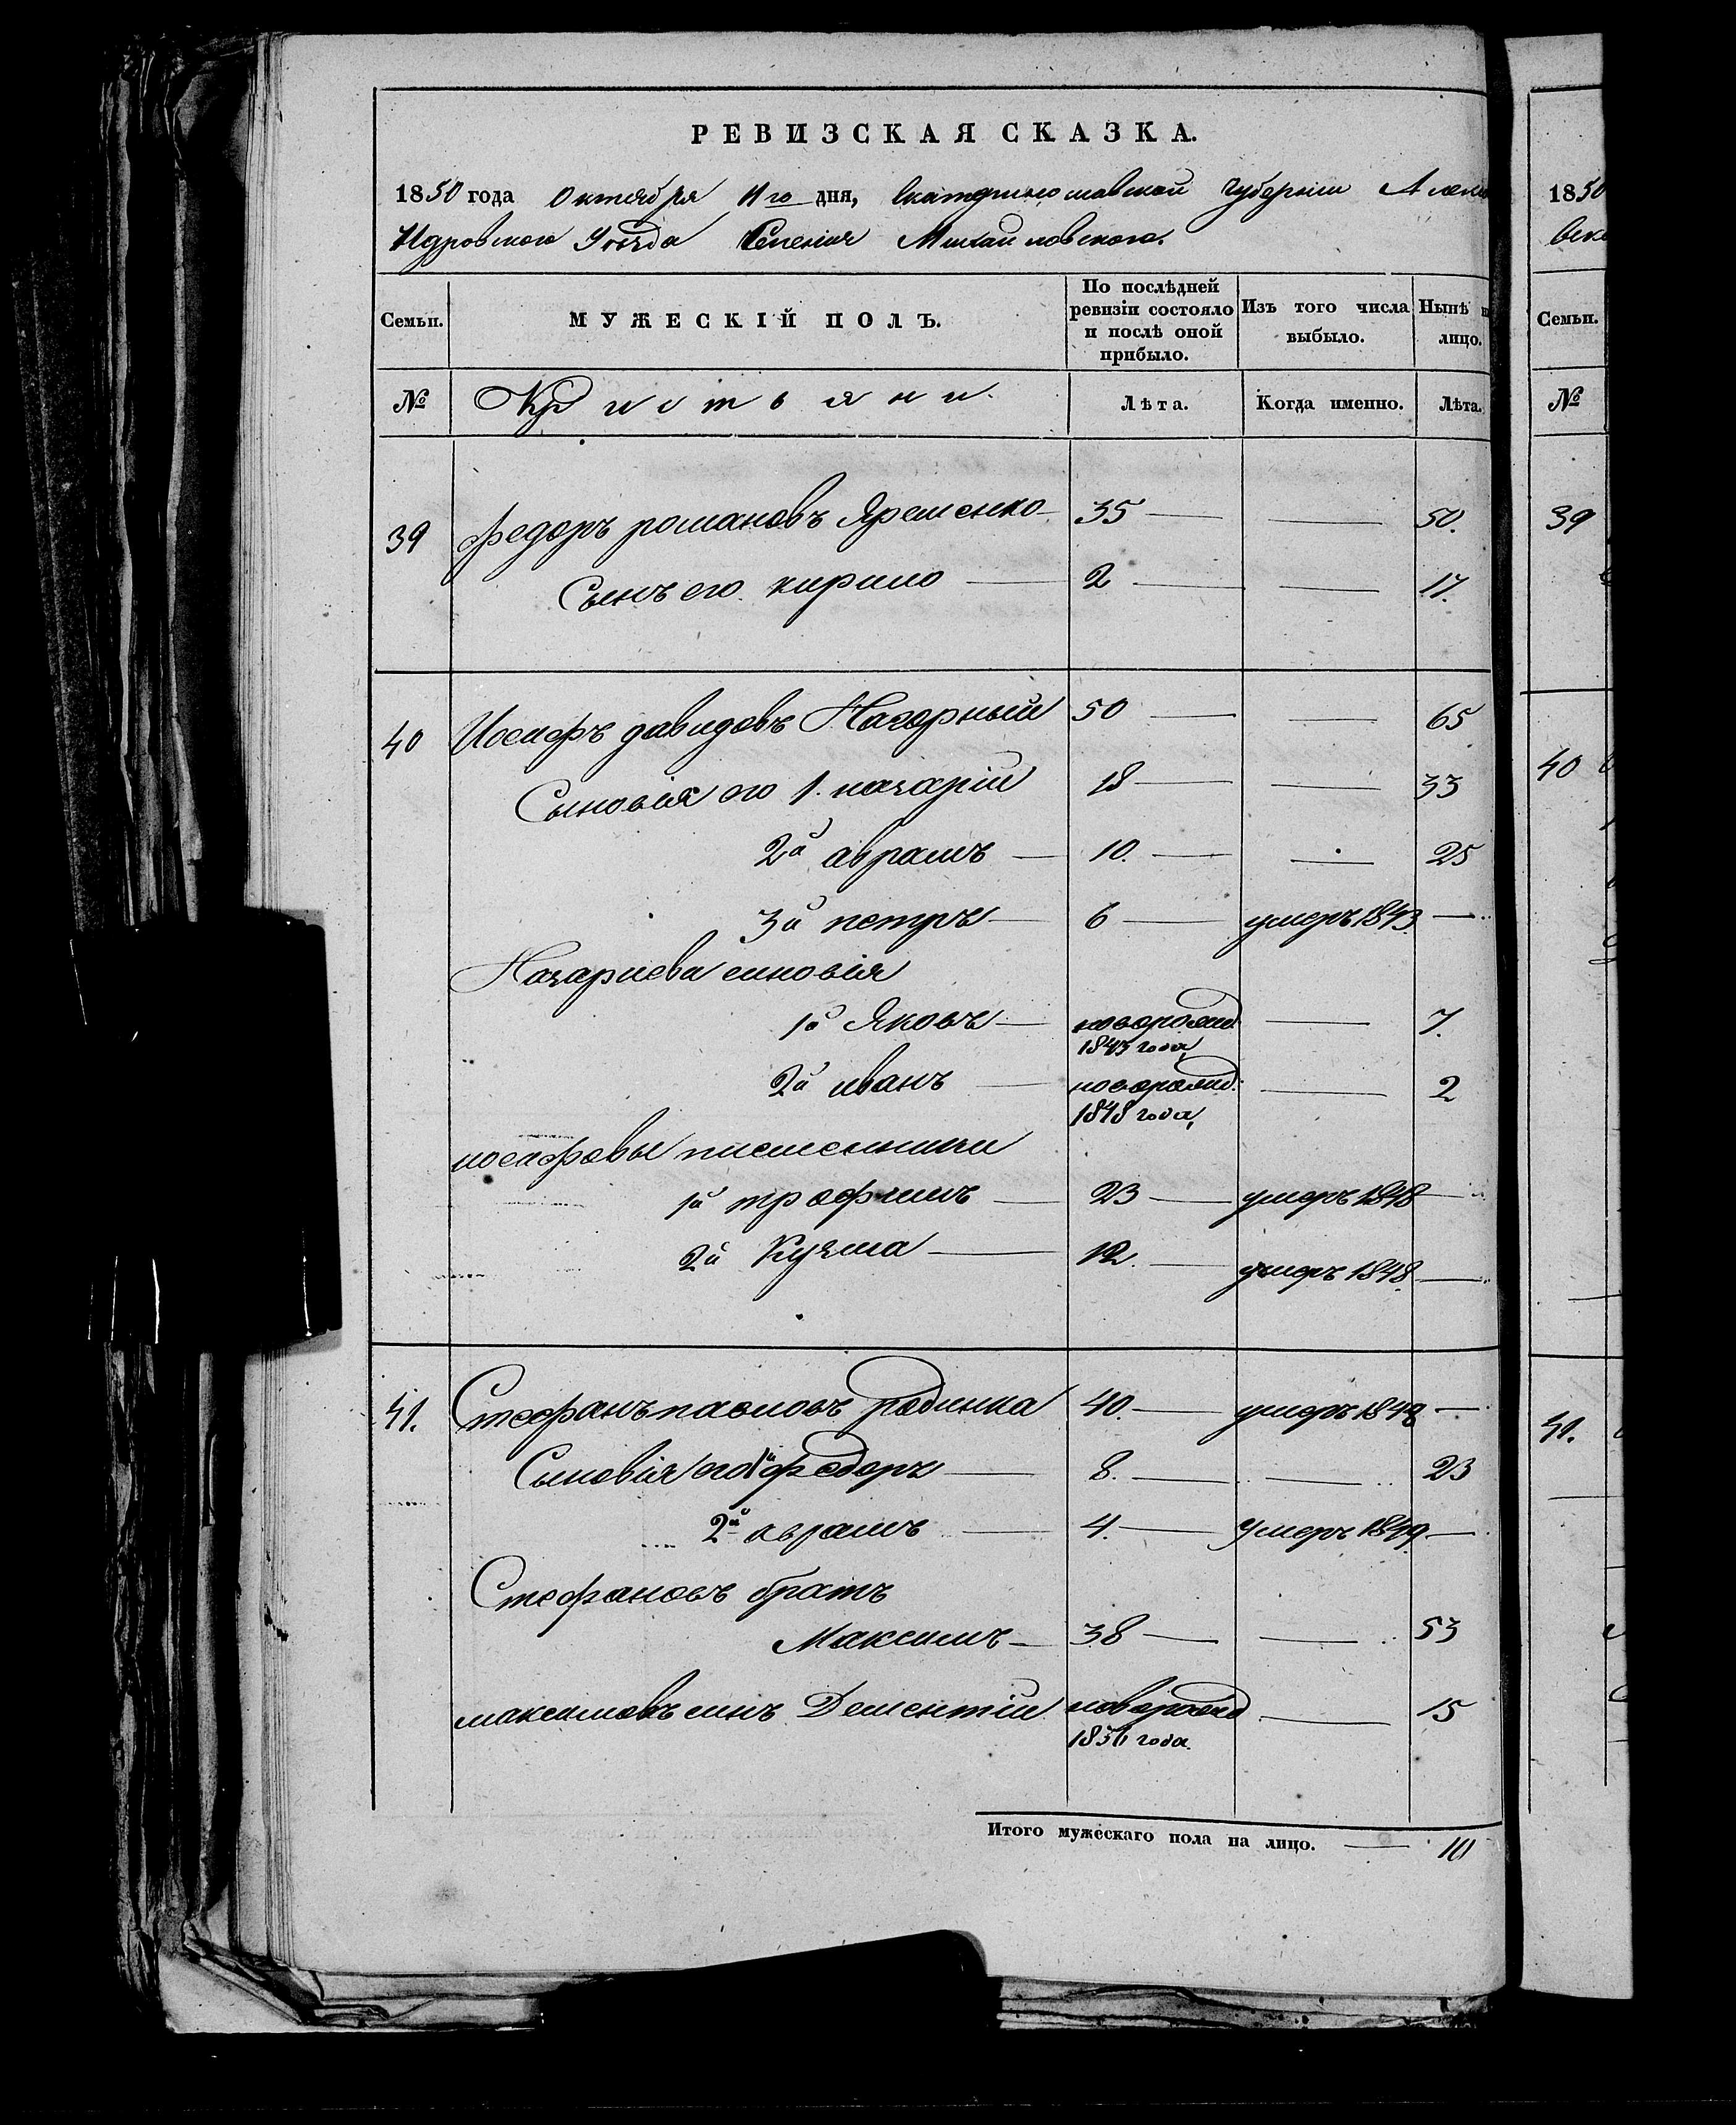 РЕВИЗСКАЯ СКАЗКА.
1850 года Октября 11го дня, Екатеринославской губерніи Алекса
Ндровского Уезда Селенія Михайловского.
Семьи. МУЖЕСКІЙ ПОЛЪ. По послѣдней ревизіи состояло и послѣ оной прибыло. Изъ того числа выбыло. Нынѣ н лицо.
№ Кристьяни. Лѣта. Когда именно. Лѣта.
39 федоръ романовъ Яременко 35 — — 50.
Сынъ его кирило — 2 — — 17.
40 Иосифъ давидовъ Нагорный 50 — — 65
Сыновія его 1. назарій 18 — — 33
2й аврамъ — 10. — — 25
3й петръ — 6 — умеръ 1843 —
Назариева синовія
1й Яковъ — новорожд.
1843 года — 7.
2й иванъ — новорожд.
1848 года, — 2
иосифовы племенники
1й трофимъ — 23 — умеръ 1848 —
2й Кузма — 12. — умеръ 1848. —
41. Стефанъ павловъ родинка 40. — умеръ 1848 —
Сыновія его 1й федоръ — 8. — — 23
2й аврамъ — 4. — Умеръ 1849 —
Стефановъ братъ
Максимъ — 38 — — 53
максимовъ синъ Дементій новорожд
1836 года. — 15
Итого мужескаго пола на лицо. — 10
1850
Семьи.
№
39
40
41.